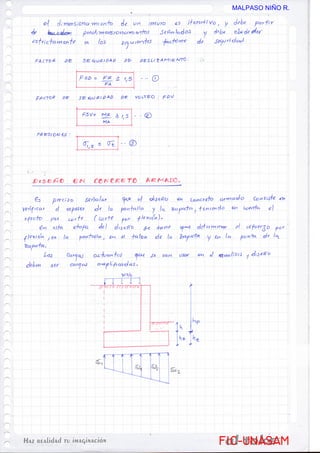 MALPASO NIÑO R.
el dimensionamiento de un muro es iterativo, y debe partir
de predimensionamientos señalados y debe obedecer
estrictamente a los siguientes factores de seguridad
FACTOR DE SEGURIDAD DE DESLIZAMIENTO:
FSD = FR/FA ≥ 1,5 -- ①
FACTOR DE SEGURIDAD DE VOLTEO FSV
FSV = MR/MA ≥ 1,5 -- ②
PRESIONES:
σ1,2 ≤ σt -- ③
DISEÑO EN CONCRETO ARMADO.
Es preciso señalar, que el diseño en concreto armado consiste en
verificar el espesor de la pantalla y la zapata, teniendo en cuenta el
efecto por corte (corte por flexión).
En esta etapa del diseño se tiene que determinar el refuerzo por
flexión, en la pantalla, en el talón de la zapata y en la punta de la
zapata.
Las cargas actuantes que se van usar en el análisis, diseño
deben ser cargas amplificadas.
hp
h
hz
σ1
σ2
Haz realidad tu imaginación
FIC-UNASAM